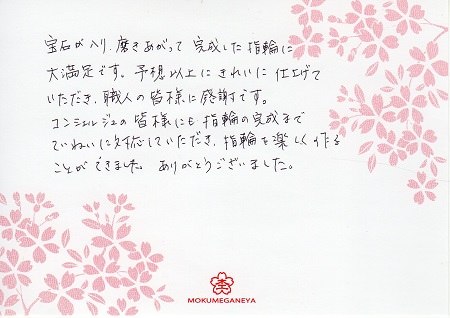 宝石が入り、磨きあがって完成した指輪に
大満足です。予想以上にきれいに仕上げて
いただき、職人の皆様に感謝です。
コンシェルジュの皆様にも指輪の完成まで
ていねいに対応していただき、指輪を楽しく作る
ことができました。ありがとうございました。
MOKUMEGANEYA